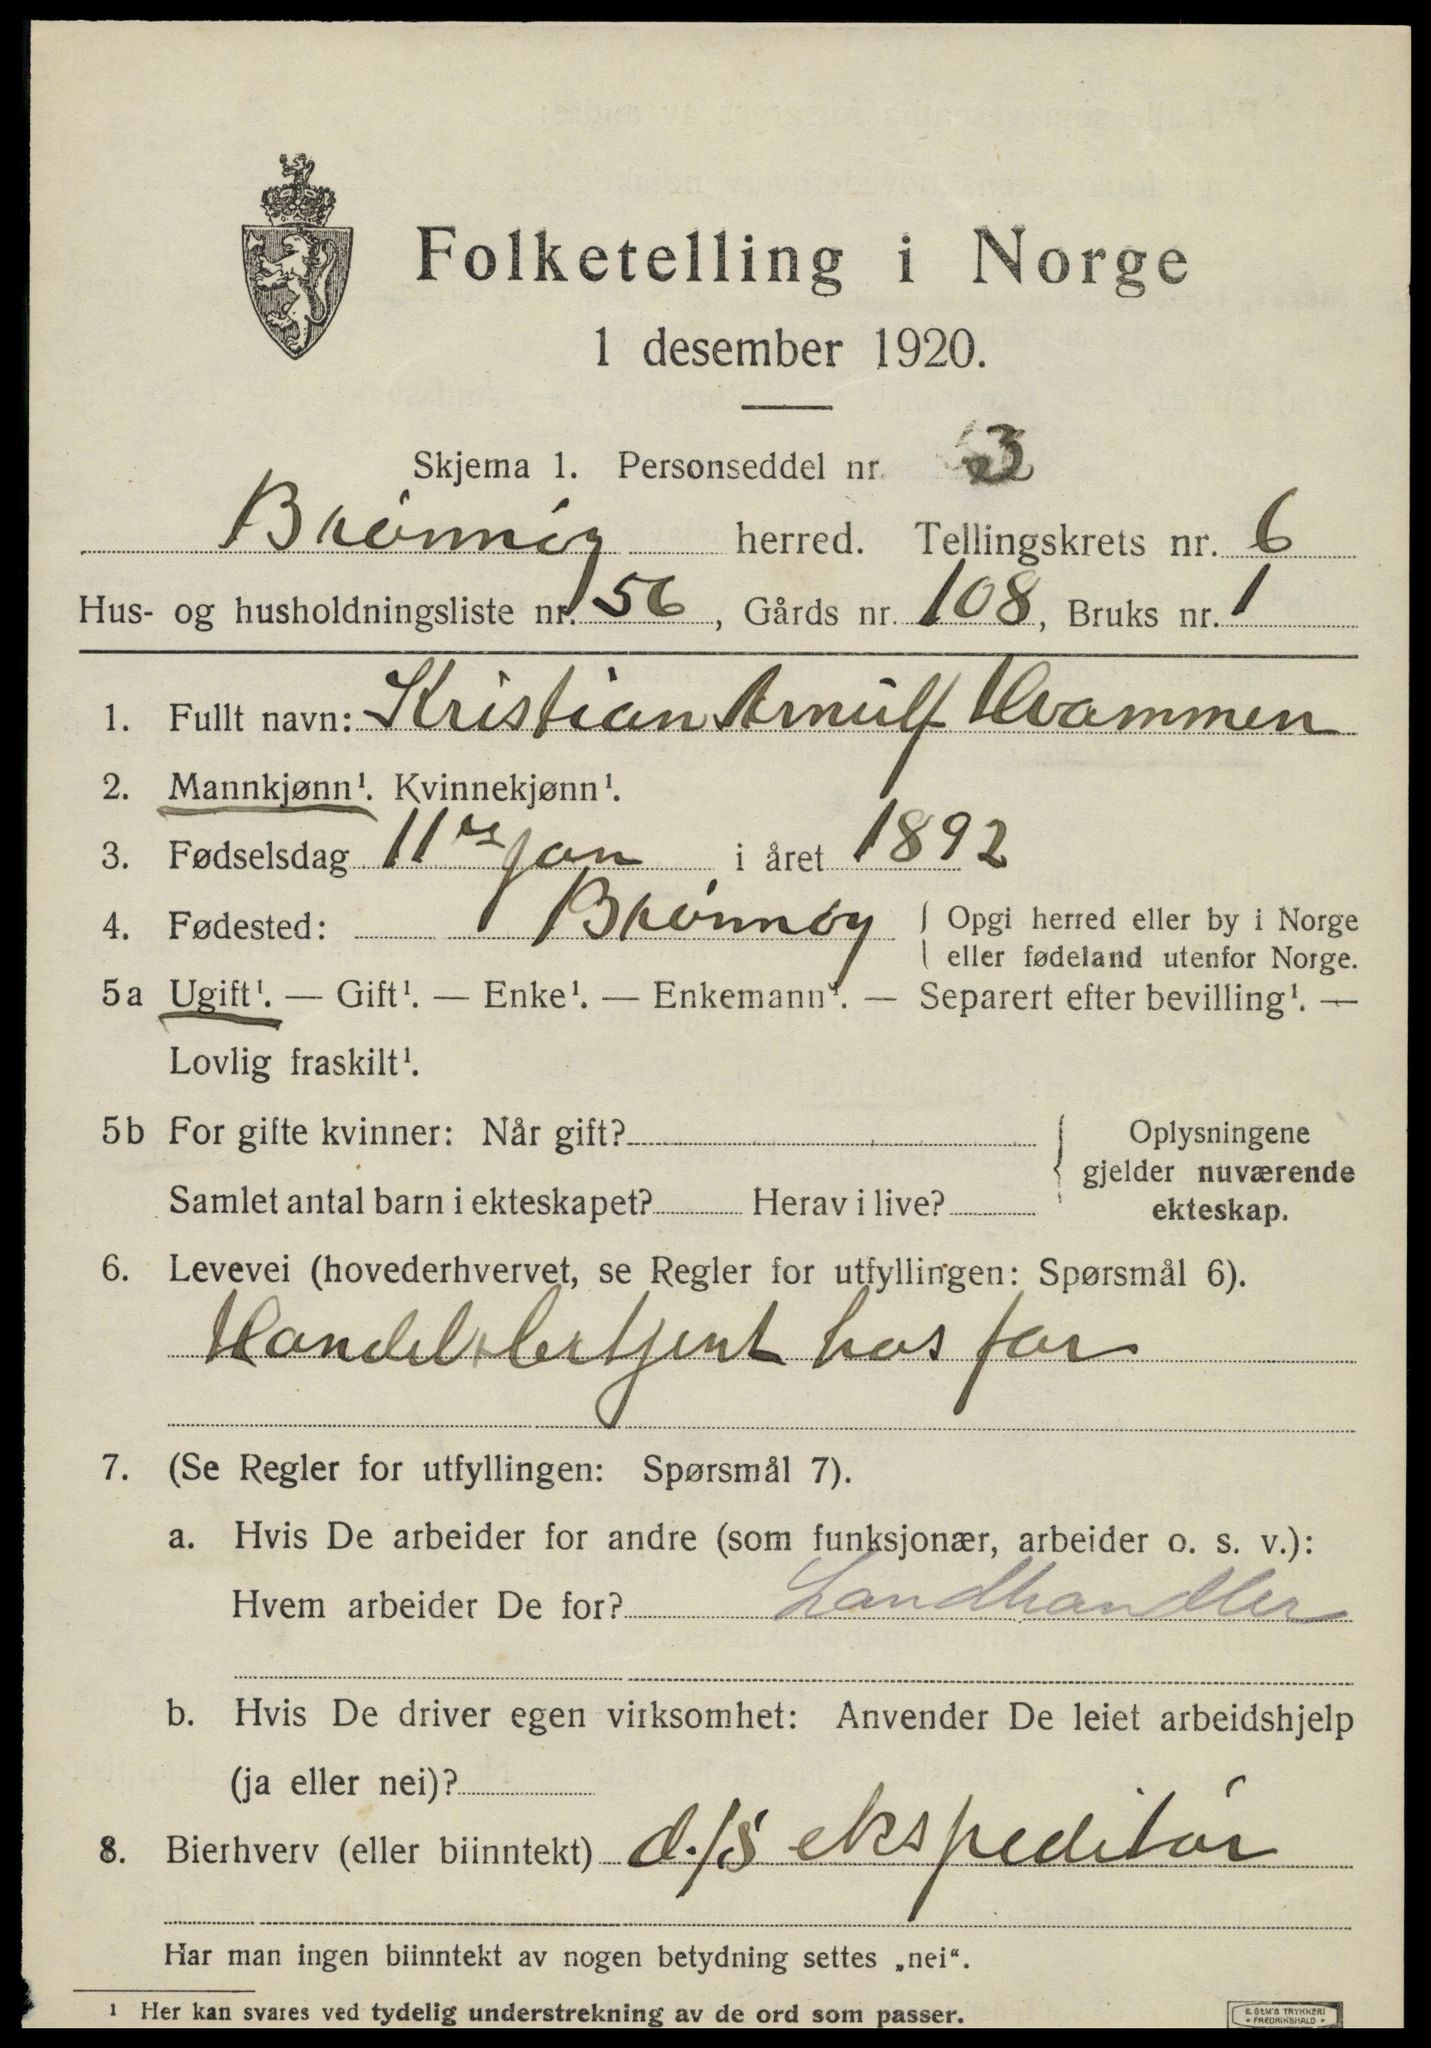 Folketelling i Norge
1 desember 1920.
Skjema 1. Personseddel nr. 3
Brönnöy herred. Tellingskrets nr. 6
Hus- og husholdningsliste nr. 56, Gårds nr. 108, Bruks nr. 1
1. Fullt navn: Kristian Arnulf Hvammen
2. Mannkjønn¹. Kvinnekjønn¹.
3. Fødselsdag 11te Jan i året 1892
4. Fødested: Brönnöy { Opgi herred eller by i Norge
eller fødeland utenfor Norge.
5a Ugift¹. — Gift¹. — Enke¹. — Enkemann¹. — Separert efter bevilling¹. —
Lovlig fraskilt¹.
5b For gifte kvinner: Når gift?
Samlet antal barn i ekteskapet? Herav i live?
Oplysningene
gjelder nuværende
ekteskap.
6. Levevei (hovederhvervet, se Regler for utfyllingen: Spørsmål 6).
Handelsbetjent hos far
7. (Se Regler for utfyllingen: Spørsmål 7).
a. Hvis De arbeider for andre (som funksjonær, arbeider o. s. v.):
Hvem arbeider De for? Landhandler
b. Hvis De driver egen virksomhet: Anvender De leiet arbeidshjelp
(ja eller nei)?
8. Bierhverv (eller biinntekt) d./s ekspeditör
Har man ingen biinntekt av nogen betydning settes „nei“.
¹ Her kan svares ved tydelig understrekning av de ord som passer.
E. SEM'S TRYKKERI
• FREDRIKSHALD •